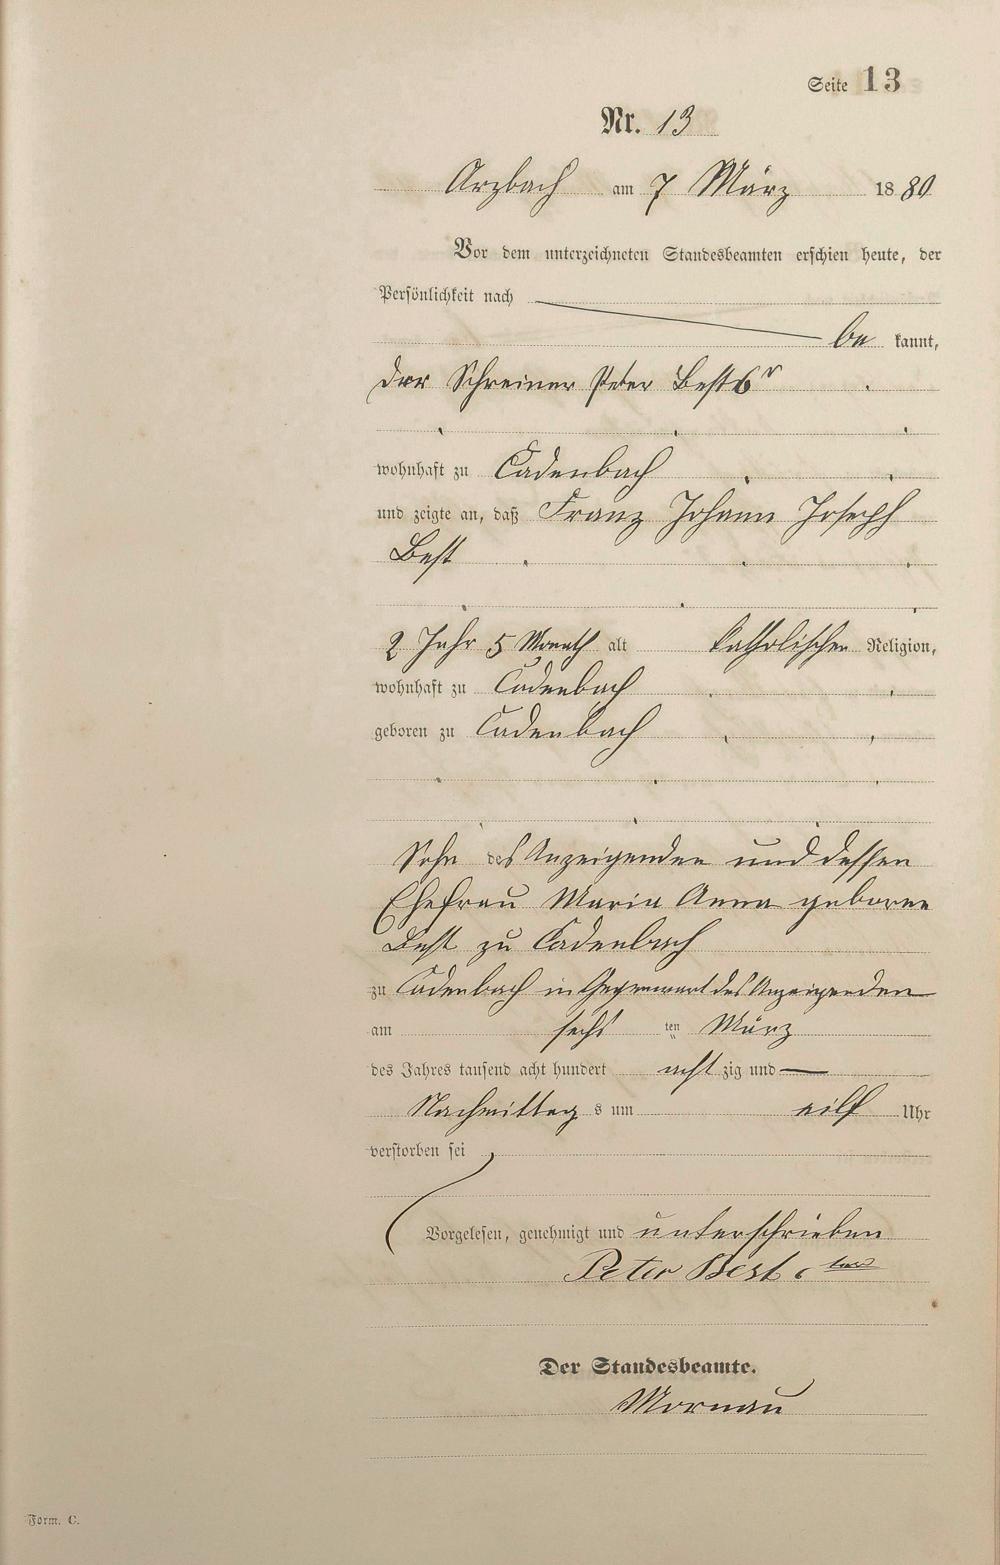 Seite 13
Nr. 13
Arzbach am 7 März 1880
Vor dem unterzeichneten Standesbeamten erschien heute, der
Persönlichkeit nach
be kannt,
der Schreiner Peter Best 6r
wohnhaft zu Cadenbach
und zeigte an, daß Franz Johann Joseph
Best
2 Jahr 5 Monath alt katholischer Religion,
wohnhaft zu Cadenbach
geboren zu Cadenbach
Sohn des Anzeigenden und dessen
Ehefrau Maria Anna geborne
Best zu Cadenbach
zu Cadenbach in Gegenwart des Anzeigenden
am sechs ten März
des Jahres tausend acht hundert acht zig und —
Nachmittag s um eilf Uhr
verstorben sei
Vorgelesen, genehmigt und unterschrieben
Peter Best 6ter
Der Standesbeamte.
Mornau
Form. C.